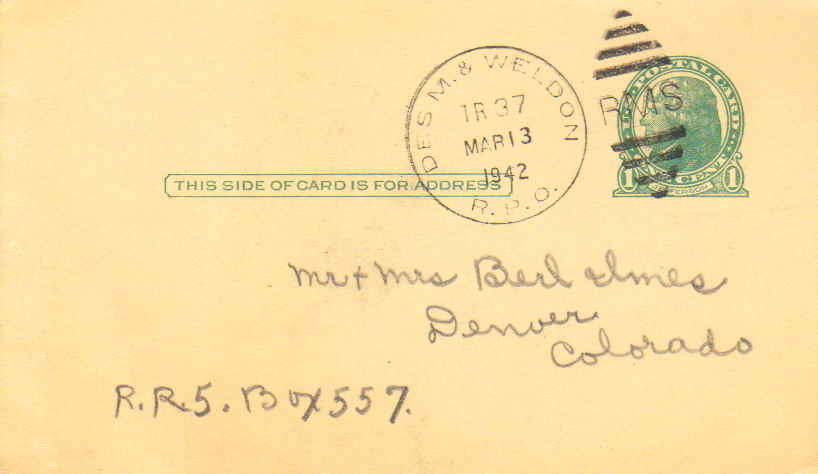 DES M. & WELDON
TR 37
MAR 13
1942
R.P.O.
RMS
U.S. POSTAL CARD
1 CENT 1
JEFFERSON
THIS SIDE OF CARD IS FOR ADDRESS
Mr + Mrs Berl
Denver
Colorado
R.R.5. Box 557.